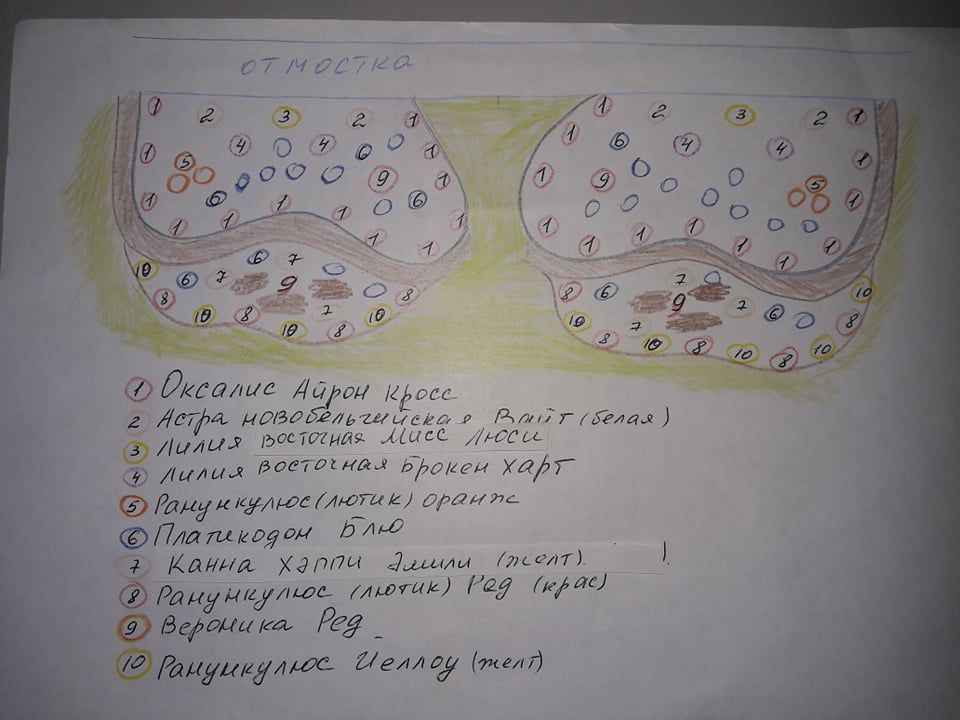 отмостка
1 2 3 2 1
1 4 4 6 1
5 9 1
1 6 1 6
1 1 1 1 1
10 6 7 6 7
8 9 8
10 8 7 10
10 8
1 2 3 2 1
1 6 4 4 1
1 9 5 1
1 1 1 1 1 1 1
8 6 7 9 7 6 10
10 7 8
8 10 8 10 8 10
1 Оксалис Айрон кросс
2 Астра новобельгийская Вайт (белая)
3 Лилия восточная Мисс Люси
4 Лилия восточная Брокен харт
5 Ранункулюс (лютик) оранж
6 Платикодон Блю
7 Канна Хэппи Эмили (желт). !
8 Ранункулюс (лютик) Ред (крас)
9 Вероника Ред
10 Ранункулюс Йеллоу (желт)